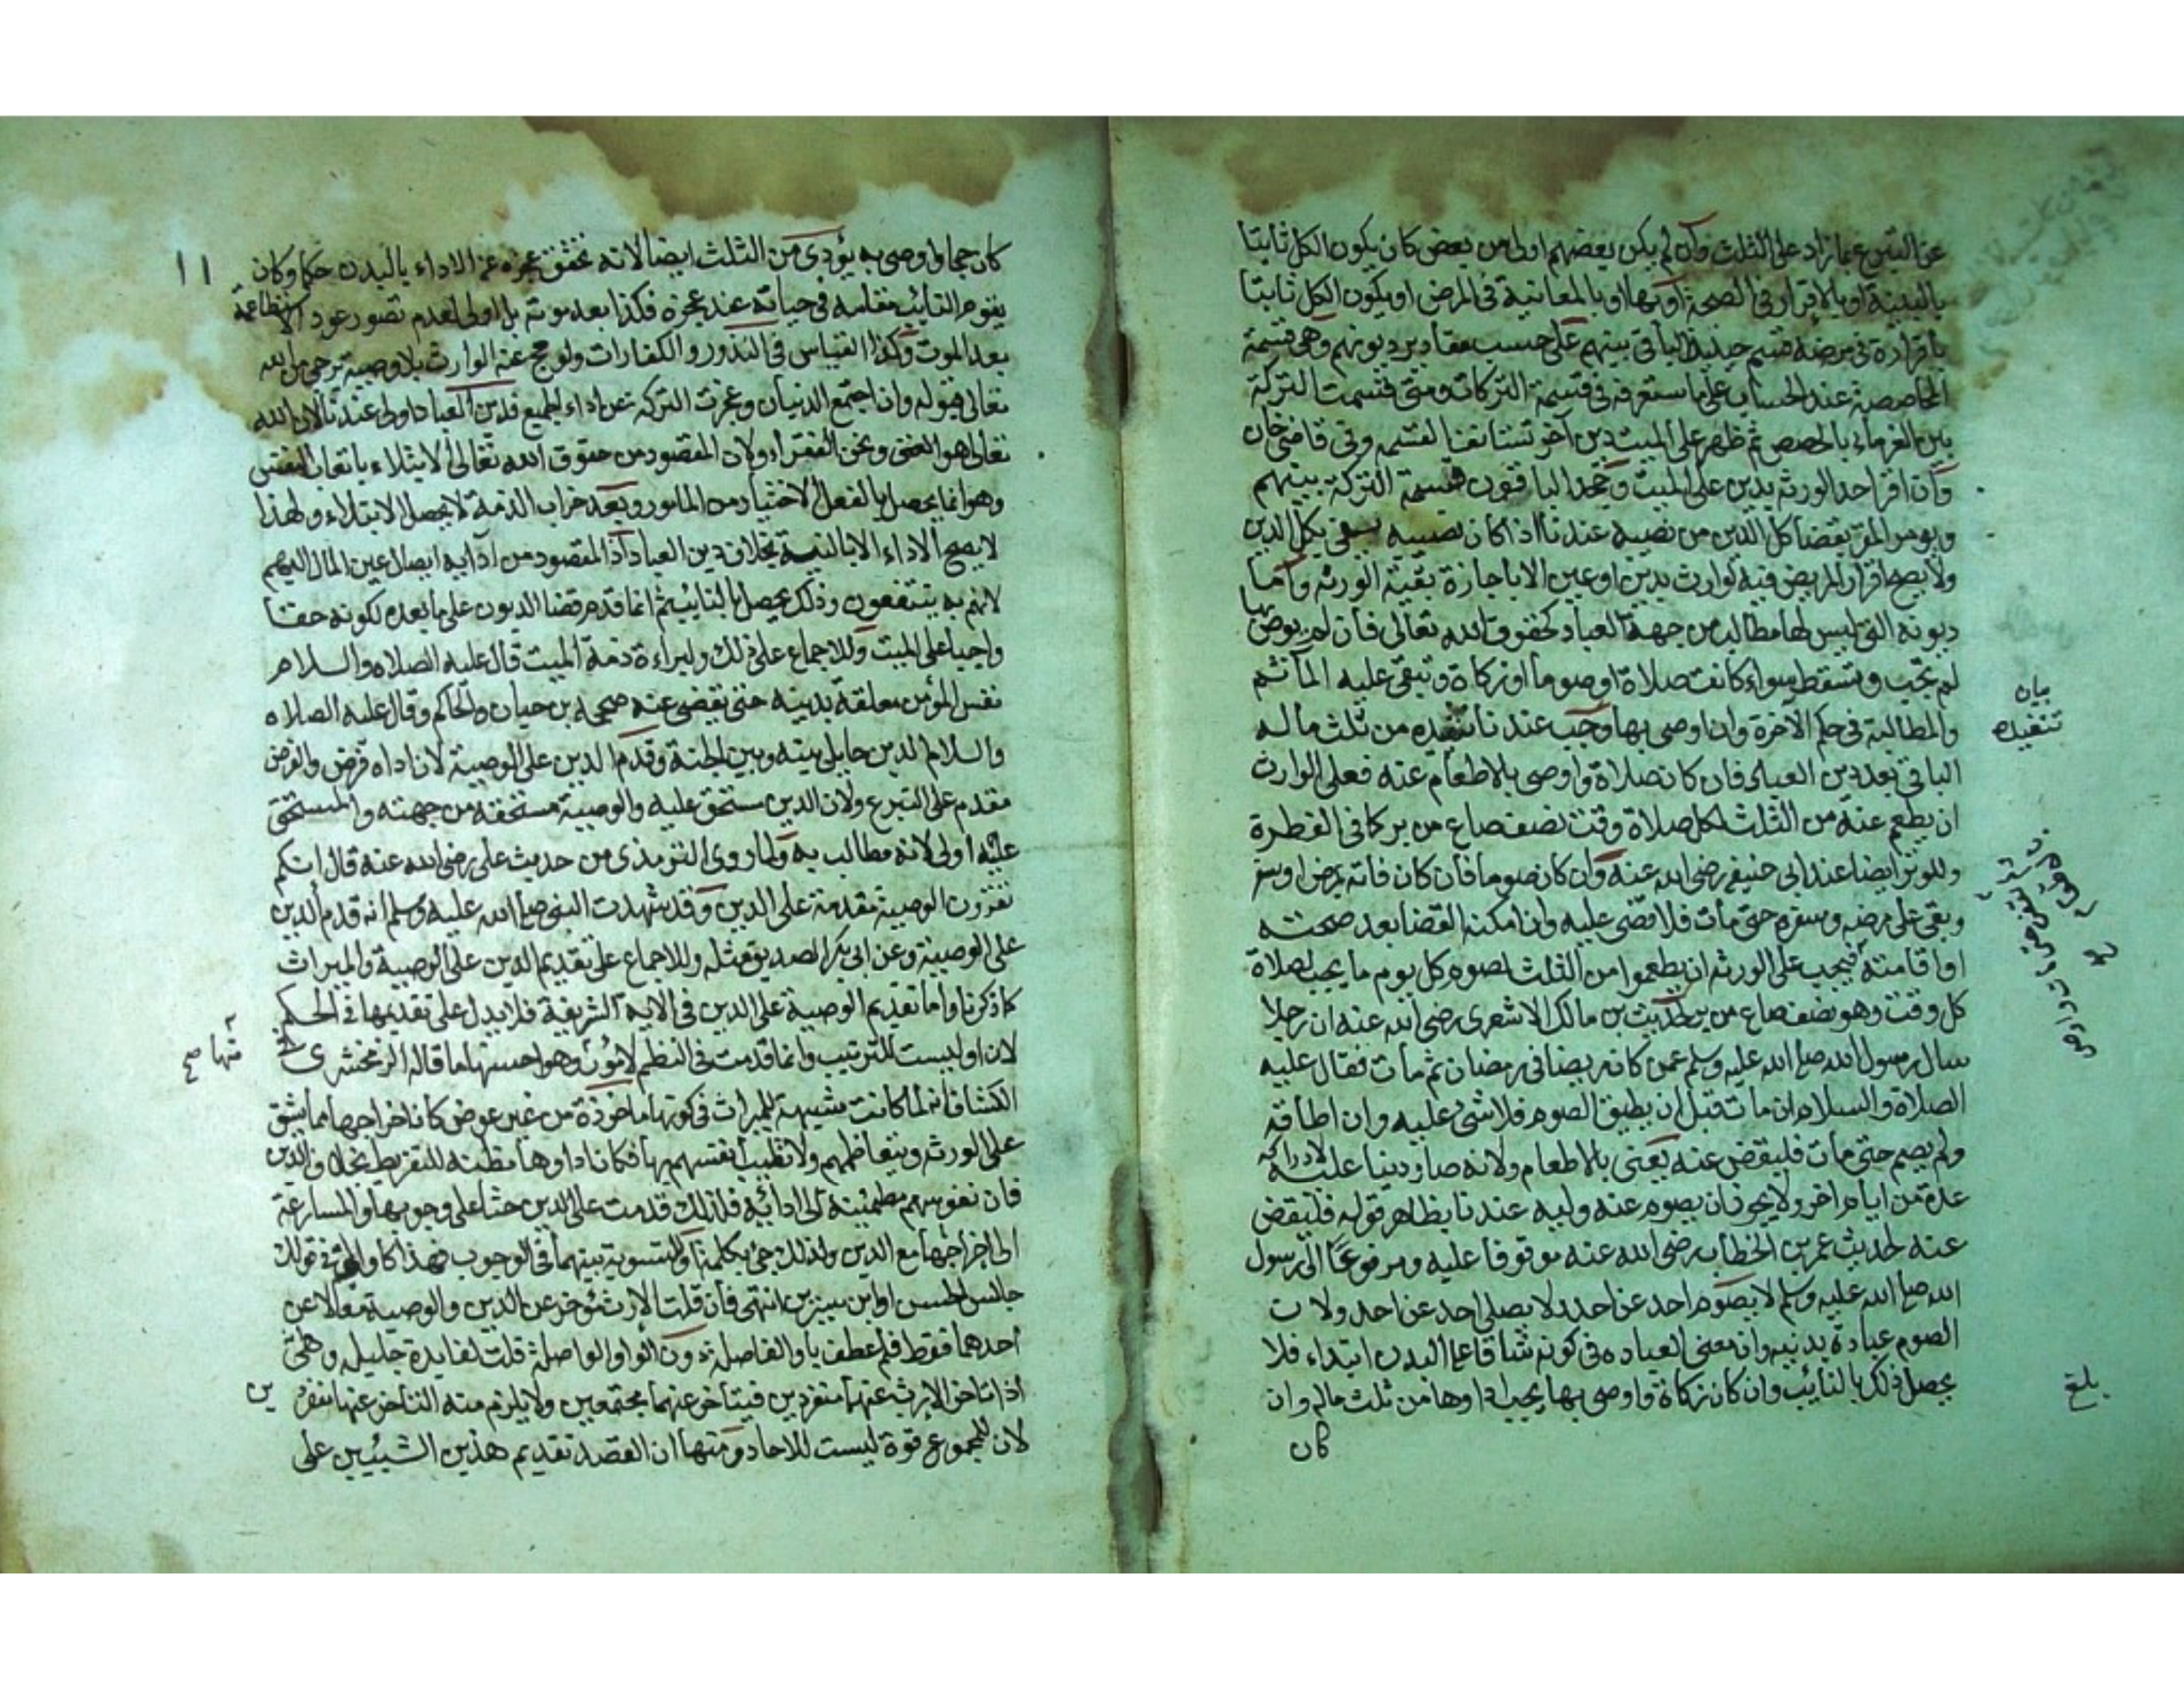 عن التبرع بما زاد على الثلث وان لم يكن بعضهم اولى من بعض كان يكون الكل ثابتا
بالبينة او بالاقرار في الصحة او بها او بالمعاينة في المرض او يكون الكل ثابتا
باقراره في مرضه قسم حينئذ الباقي بينهم على حسب مقادير ديونهم وهي قسمة
المحاصصة عند الحساب على ما ستعرفه في قسمة التركات ومتى قسمت التركة
بين الغرماء بالحصص ثم ظهر على الميت دين آخر تستانف القسمة وفي قاضي خان
وان اقر احد الورثة بدين على الميت وجحد الباقون قسمة التركة بينهم
ويومر المقر بقضا كل الدين من نصيبه عندنا اذا كان نصيبه يفي بكل الدين
ولا يصح اقرار المريض فيه لوارث بدين او عين الا باجازة بقية الورثه واما
ديونه التي ليس لها مطالب من جهة العباد كحقوق الله تعالى فان لم يوص بها
لم تجب وتسقط سواء كانت صلاة او صوما او زكاة وتبقى عليه المآثم
والمطالبة في حكم الآخرة وان اوصى بها وجب عندنا تنفيذه من ثلث ماله
الباقي بعد دين العباد فان كان صلاة واوصى بالاطعام عنه فعلى الوارث
ان يطعم عنه من الثلث لكل صلاة وقت نصف صاع من بر كما في الفطرة
وللوتر ايضا عند ابي حنيفه رضي الله عنه وان كان صوما فان كان فاته بمرض او سفر
وبقي على مرضه وسفره حتى مات فلا قضى عليه وان امكنه القضا بعد صحته
او اقامته فيجب على الورثه ان يطعموا من الثلث لصوم كل يوم ما يجب لصلاة
كل وقت وهو نصف صاع من بر لحديث بن مالك الاشعري رضي الله عنه ان رجلا
سال رسول الله صلى الله عليه وسلم عمن كان مريضا في رمضان ثم مات فقال عليه
الصلاة والسلام ان مات قبل ان يطيق الصوم فلا شئ عليه وان اطاقه
ولم يصم حتى مات فليقض عنه يعني بالاطعام ولانه صار دينا عليه لادراكه
عدة من ايام اخر ولا يجوز ان يصوم عنه وليه عندنا بظاهر قوله فليقض
عنه لحديث عمر بن الخطاب رضي الله عنه موقوفا عليه ومرفوعا الى رسول
الله صلى الله عليه وسلم لا يصوم احد عن احد ولا يصلي احد عن احد ولان
الصوم عبادة بدنيه وان معنى العباده في كونه شاقا على البدن ابتداء فلا
يحصل ذلك بالنائب وان كان زكاة واوصى بها يجب اداوها من ثلث ماله وان
كان
بيان
تنفيذه
بلغ
١١
كان حجا واوصى به يؤدى من الثلث ايضا لانه تحقق عجزه عن الاداء بالبدن حكما وكان
يقوم النائب مقامه في حياته عند عجزه فكذا بعد موته بل اولى لعدم تصور عود الاستطاعة
بعد الموت وكذا القياس في النذور والكفارات ولو حج عنه الوارث بلا وصية يرجى من الله
تعالى قبوله وان اجتمع الدنيان وعجزت التركه عن اداء الجميع فدين العباد اولى عندنا لان الله
تعالى هو الغني ونحن الفقراء ولان المقصود من حقوق الله تعالى الابتلاء باتعاب النفس
وهو انما يحصل بالفعل الاختيار من المامور وبعد خراب الذمة لا يحصل الابتلاء ولهذا
لا يصح الاداء الا بالنية بخلاف دين العباد اذ المقصود من ادايه ايصال عين المال اليهم
لانهم به ينتفعون وذلك يحصل بالنايب ثم انما قدم قضا الديون على ما بعده لكونه حقا
واجبا على الميت وللاجماع على ذلك ولبراءة ذمة الميت قال عليه الصلاه والسلام
نفس المؤمن معلقة بدينه حتى يقضى عنه صححه بن حبان والحاكم وقال عليه الصلاه
والسلام الدين حايل بينه وبين الجنة وقدم الدين على الوصية لان اداه فرض والفرض
مقدم على التبرع ولان الدين مستحق عليه والوصية مستحقة من جهته والمستحق
عليه اولى لانه مطالب به ولما روى الترمذي من حديث علي رضي الله عنه قال انكم
تقرون الوصية مقدمة على الدين وقد شهدت النبي صلى الله عليه وسلم انه قدم الدين
على الوصية وعن ابي بكر الصديق مثله وللاجماع على تقديم الدين على الوصية والميراث
كما ذكرنا واما تقديم الوصية على الدين في الايه الشريفة فلا يدل على تقديمها في الحكم
لان او ليست للترتيب وانما قدمت في النظم لامور وهو احسنها ما قاله الزمخشري في
منها صح
الكشاف انه لما كانت شبيهة للميراث في كونها ماخوذة من غير عوض كان اخراجها مما يشق
على الورثه ويتعاظمهم ولا تطيب انفسهم بها فكان اداوها مظنه للتفريط بخلاف الدين
فان نفوسهم مطمئنة الى ادائه فلذلك قدمت على الدين حثا على وجوبها والمسارعة
الى اخراجها مع الدين ولذلك جئ بكلمة او للتسوية بينهما في الوجوب فهذا كاو التي في قولك
جالس الحسن او ابن سيرين انتهى فان قلت الارث مؤخر عن الدين والوصية معا لا عن
احدهما فقط فلم عطف باو الفاصلة دون الواو الواصلة قلت لفايدة جليله وهي
اذا تاخر الارث عنهما منفردين فيتاخر عنهما مجتمعين ولا يلزم منه التاخر عنها منفردين
لان للمجموع قوة ليست للاحاد ومنها ان القصد تقديم هذين الشيئين على